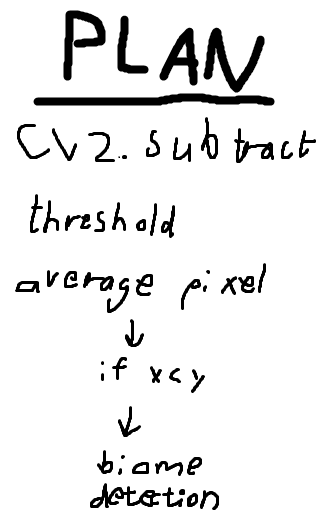 PLAN
CV2. subtract
threshold
average pixel
↓
if x<y
↓
biome
detetion